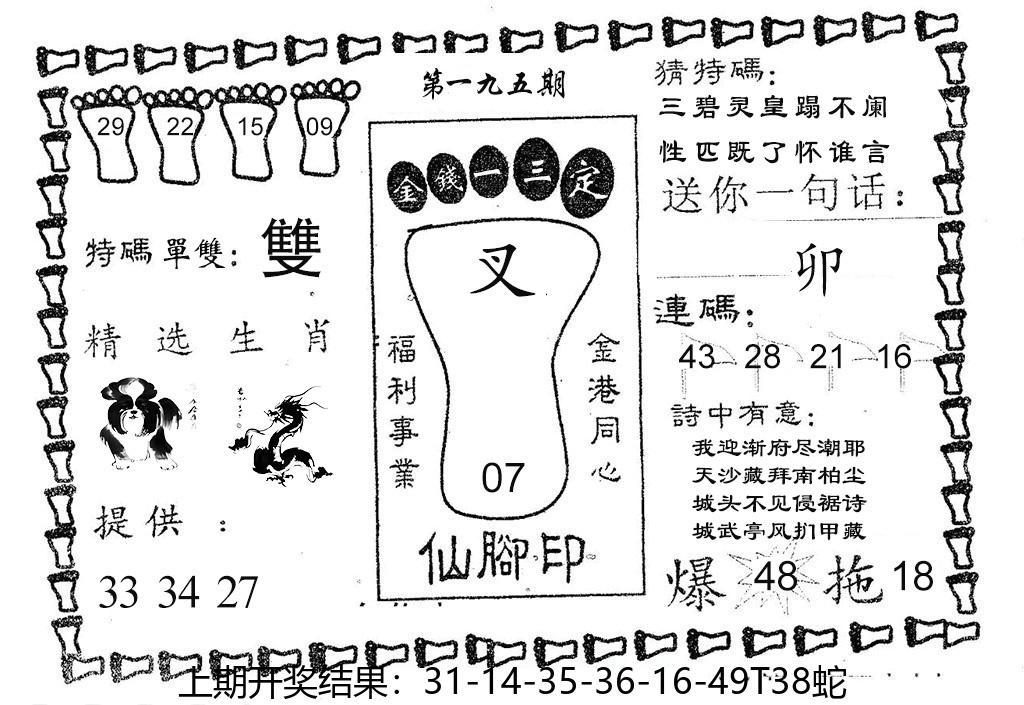 第一九五期
29 22 15 09
特碼單雙：雙
精选生肖
提供：
33 34 27
金錢一三定
叉
福利事業
金港同心
07
仙腳印
猜特碼：
三碧灵皇蹋不阑
性匹既了怀谁言
送你一句话：
卯
連碼：
43 28 21 16
詩中有意：
我迎渐府尽潮耶
天沙藏拜南柏尘
城头不见侵裾诗
城武亭风扪甲藏
爆 48 拖 18
上期开奖结果：31-14-35-36-16-49T38蛇